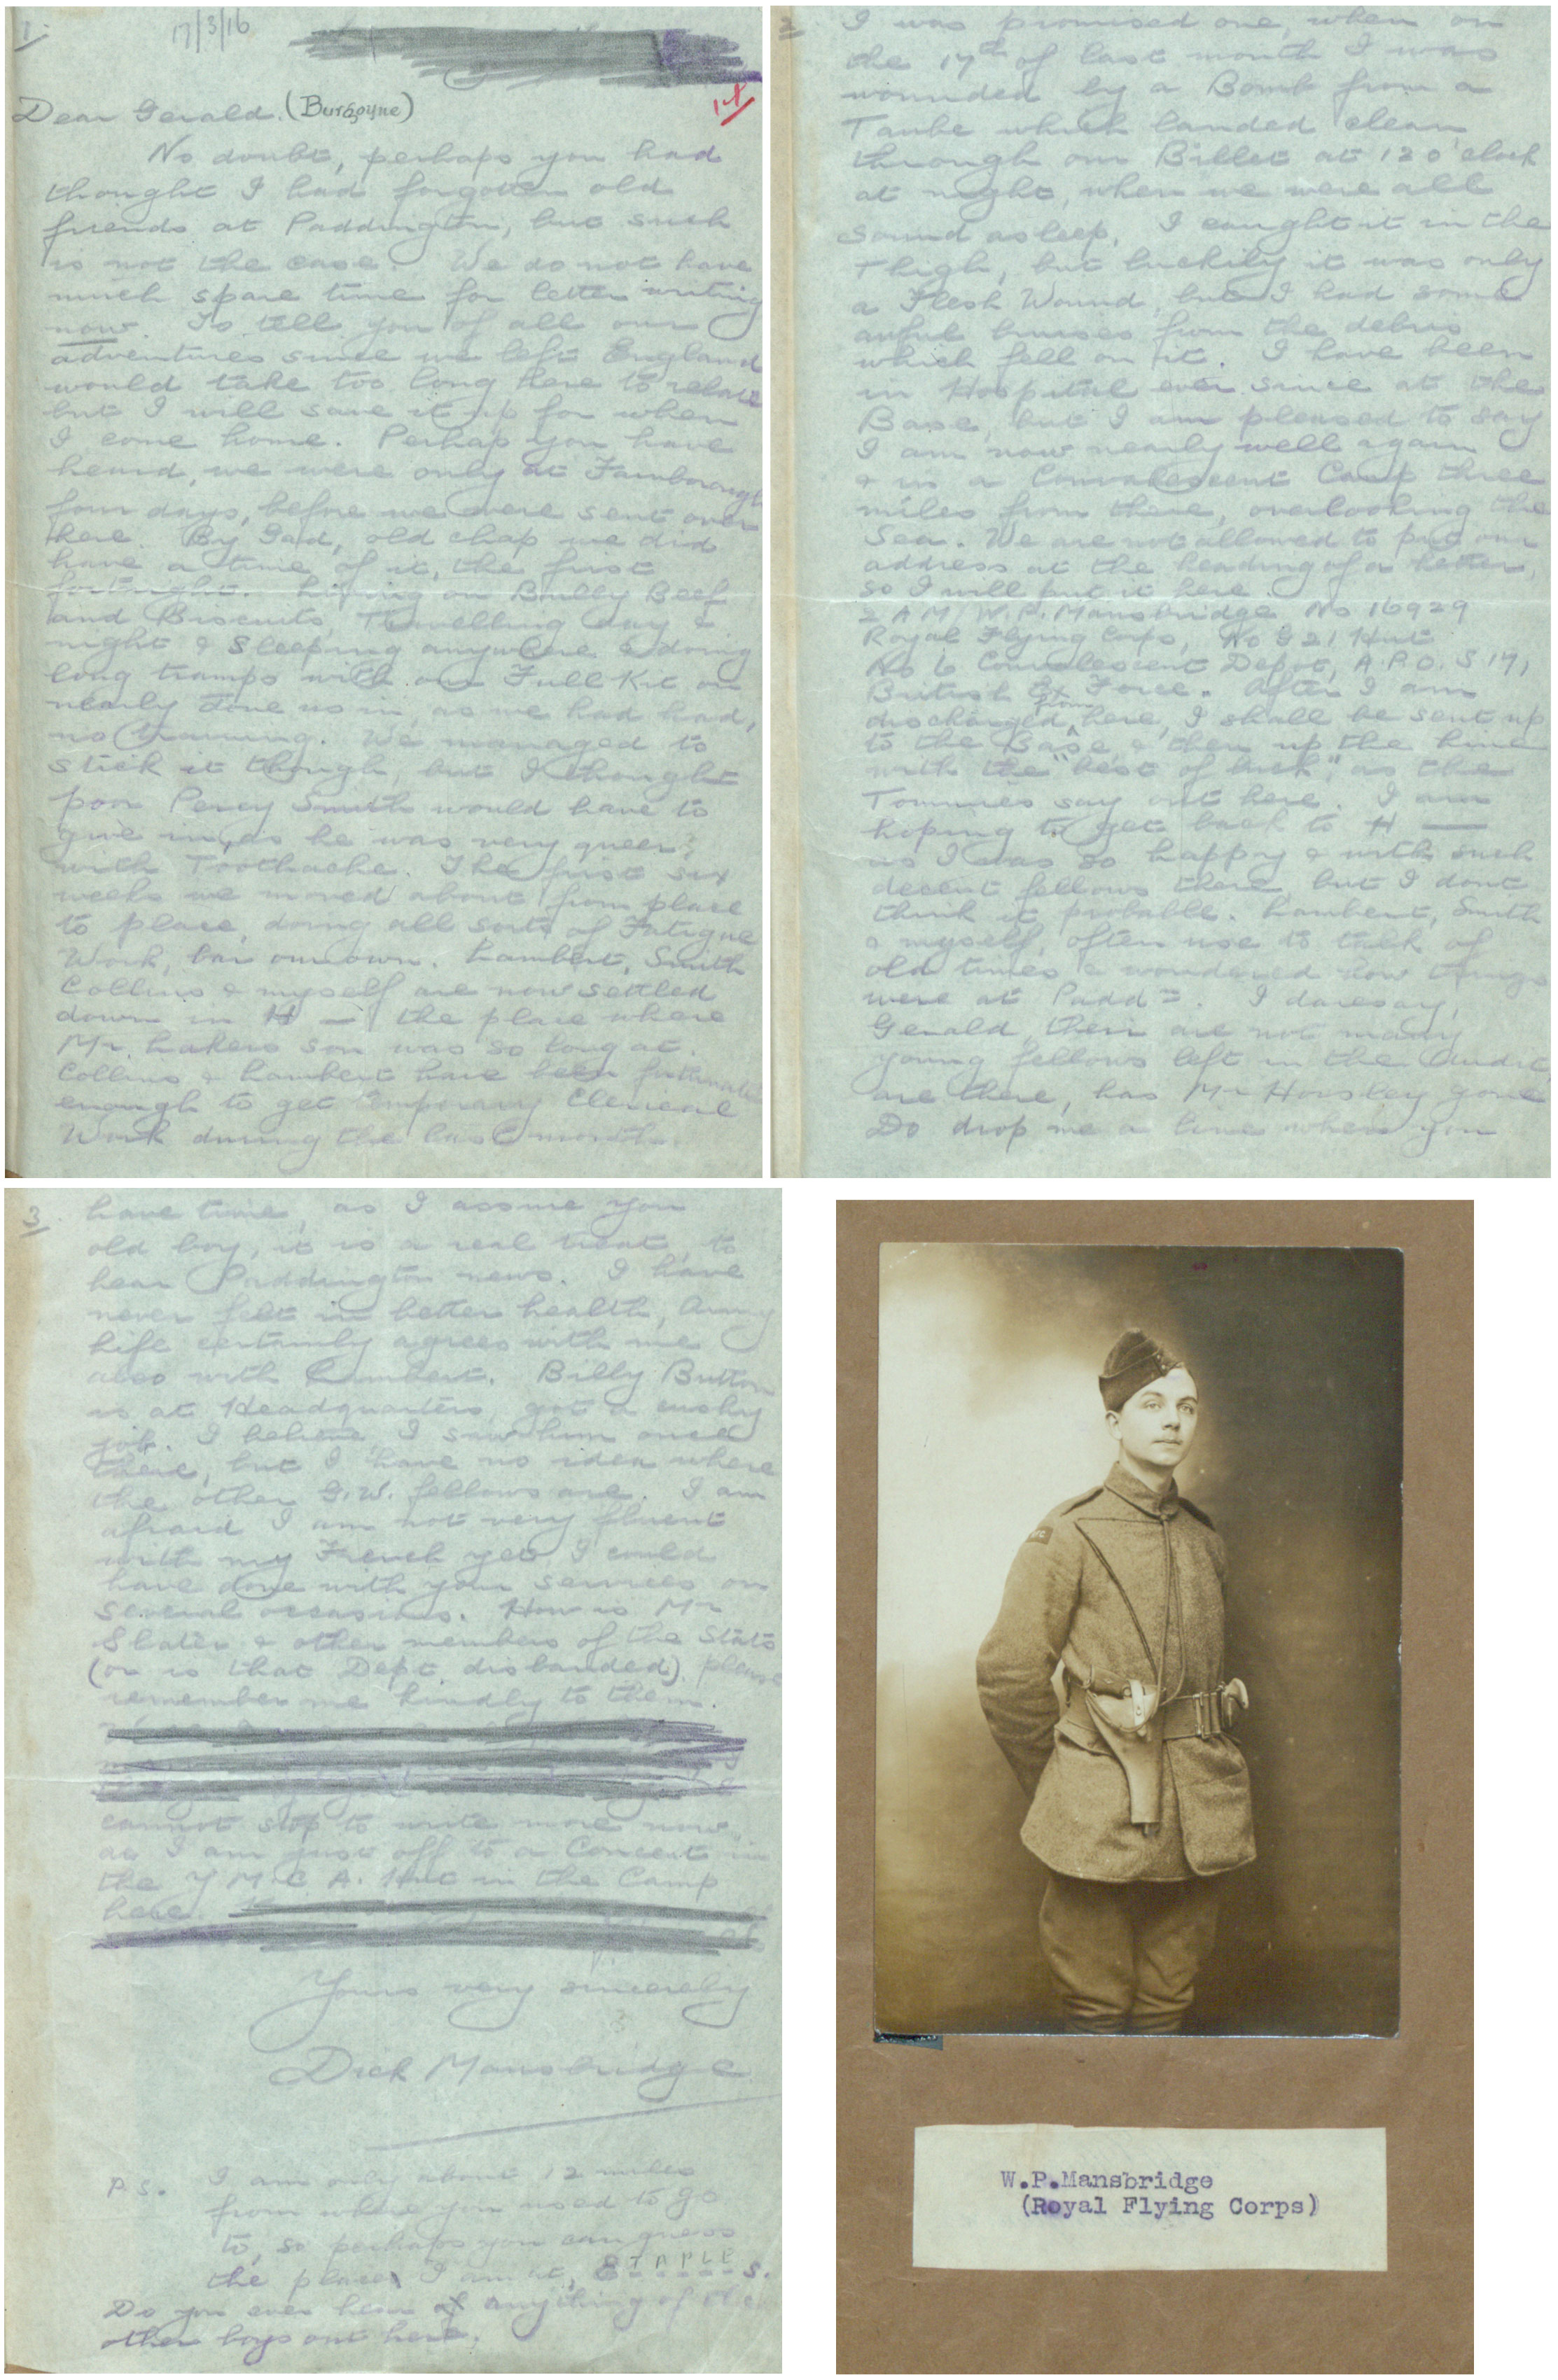 1.
17/3/16
Dear Gerald. (Burgoyne)
No doubt, perhaps you had
thought I had forgotten old
friends at Paddington, but such
is not the case. We do not have
much spare time for letter writing
now. To tell you of all our
adventures since we left England
would take too long here to relate
but I will save it up for when
I come home. Perhap you have
heard, we were only at Farnborough
four days, before we were sent over
here. By Gad, old chap we did
have a time of it, the first
fortnight. Living on Bully Beef
and Biscuits, Travelling day &
night & Sleeping anywhere & doing
long tramps with our Full Kit on
nearly done us in, as we had had,
no training. We managed to
stick it though, but I thought
poor Percy Smith would have to
give in, as he was very queer
with Toothache. The first six
weeks we moved about from place
to place, doing all sorts of Fatigue
Work, bar our own. Lambert, Smith
Collins & myself are now settled
down in H — the place where
Mr. Lakers son was so long at.
Collins & Lambert have been fortunate
enough to get temporary Clerical
Work during the last month.
2
I was promised one, when on
the 17th of last month I was
wounded by a Bomb from a
Taube which landed clean
through our Billet at 12 o'clock
at night, when we were all
sound asleep, I caught it in the
Thigh, but luckily it was only
a Flesh Wound, but I had some
awful bruises from the debris
which fell on it. I have been
in Hospital ever since at the
Base, but I am pleased to say
I am now nearly well again
& in a Convalescent Camp three
miles from there, overlooking the
Sea. We are not allowed to put our
address at the heading of a letter,
so I will put it here.
2 A M/ W.P. Mansbridge No 16929
Royal Flying Corps, No G 21 Hut
No 6 Convalescent Depot, A.P.O. S 17,
British Ex Force. After I am
discharged from here, I shall be sent up
to the Base & then up the line
with the "best of luck", as the
Tommies say out here. I am
hoping to get back to H —
as I was so happy & with such
decent fellows there, but I dont
think it probable. Lambert, Smith
& myself, often use to talk of
old times & wondered how things
were at Padd=. I daresay,
Gerald, their are not many
young fellows left in the Audit
are there, has Mr Horsley gone
Do drop me a line when you
3.
have time, as I assure you
old boy, it is a real treat, to
hear Paddington news. I have
never felt in better health, Army
life certainly agrees with me
also with Lambert. Billy Button
is at Headquarters, got a cushy
job. I believe, I saw him once
there, but I have no idea where
the other G.W. fellows are. I am
afraid I am not very fluent
with my French yet, I could
have done with your services on
several occasions. How is Mr
Slater & other members of the Stats
(or is that Dept. disbanded). please
remember me kindly to them.
cannot stop to write more now
as I am just off to a Concert in
the Y M. C. A. Hut in the Camp
here.
Yours very sincerely
Dick Mansbridge
P.S. I am only about 12 miles
from where you used to go
to, so perhaps you can guess
the place I am at, E T A P L E S.
Do you ever hear of anything of the
other boys out here.
W.P.Mansbridge
(Royal Flying Corps)